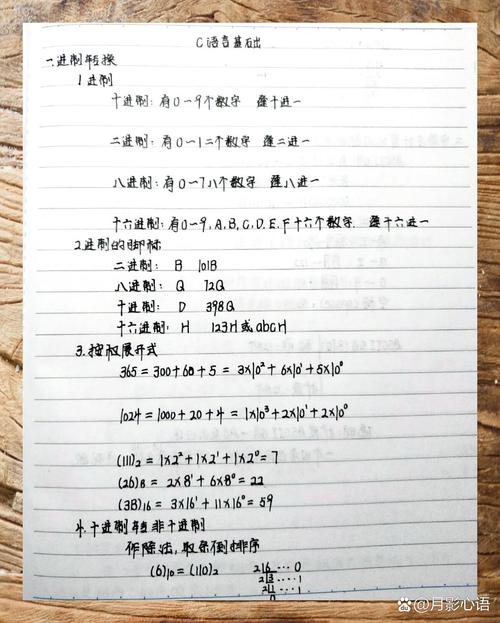 C语言基础
一.进制转换
1.进制
十进制：有0～9个数字 逢十进一
二进制：有0～1二个数字 逢二进一
八进制：有0～7八个数字 逢八进一
十六进制：有0～9,A,B,C,D,E,F十六个数字. 逢十六进一
2.进制的脚标
二进制： B 101B
八进制： Q 72Q
十进制： D 398Q
十六进制： H 123H或abcH
3.按权展开式
365=300+60+5=3×10²+6×10¹+5×10⁰
1024=1000+20+4=1×10³+2×10¹+2×10⁰
(111)₂=1×2²+1×2¹+1×2⁰=7
(26)₈=2×8¹+6×8⁰=22
(3B)₁₆=3×16¹+11×16⁰=59
4.十进制转非十进制
作除法,取余倒排序
(6)₁₀=(110)₂ 2|6…0
2|3…1
2|1…1
0
百家号@月影心语